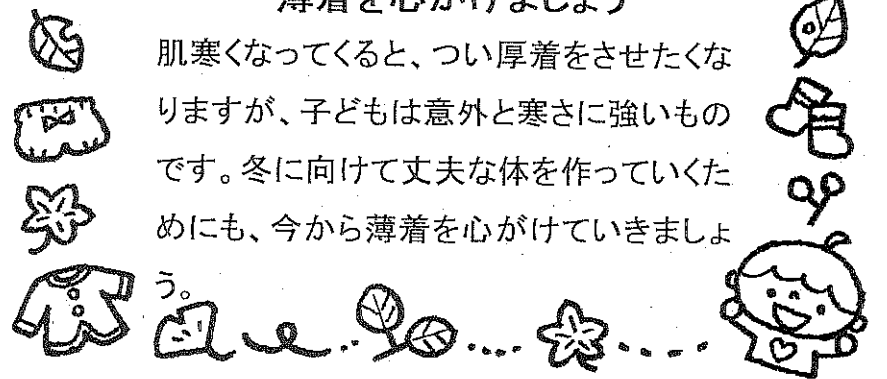 薄着を心がけましょう
肌寒くなってくると、つい厚着をさせたくな
りますが、子どもは意外と寒さに強いもの
です。冬に向けて丈夫な体を作っていくた
めにも、今から薄着を心がけていきましょ
う。